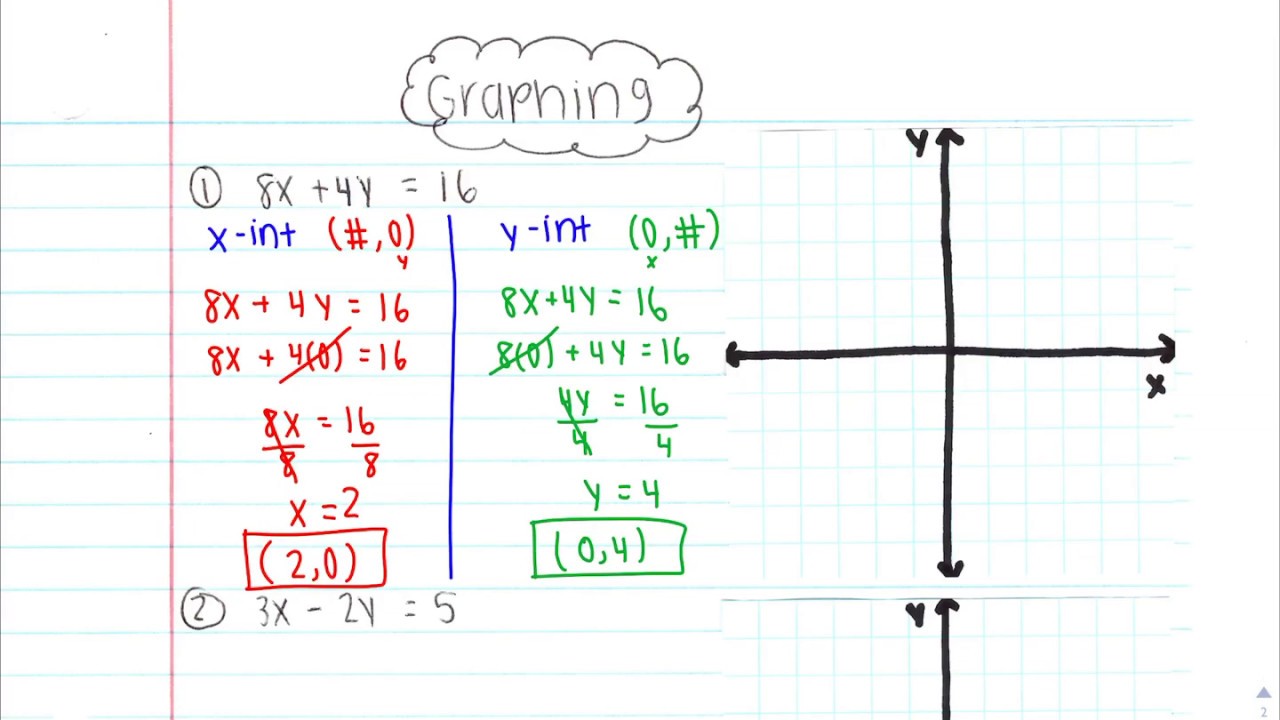 Graphing
① 8x + 4y = 16
x-int (#,0)
y
8x + 4y = 16
8x + 4(0) = 16
8x = 16
8 8
x = 2
(2,0)
y-int (0,#)
x
8x+4y = 16
8(0) + 4y = 16
4y = 16
4 4
y = 4
(0,4)
② 3x - 2y = 5
y
x
y
2